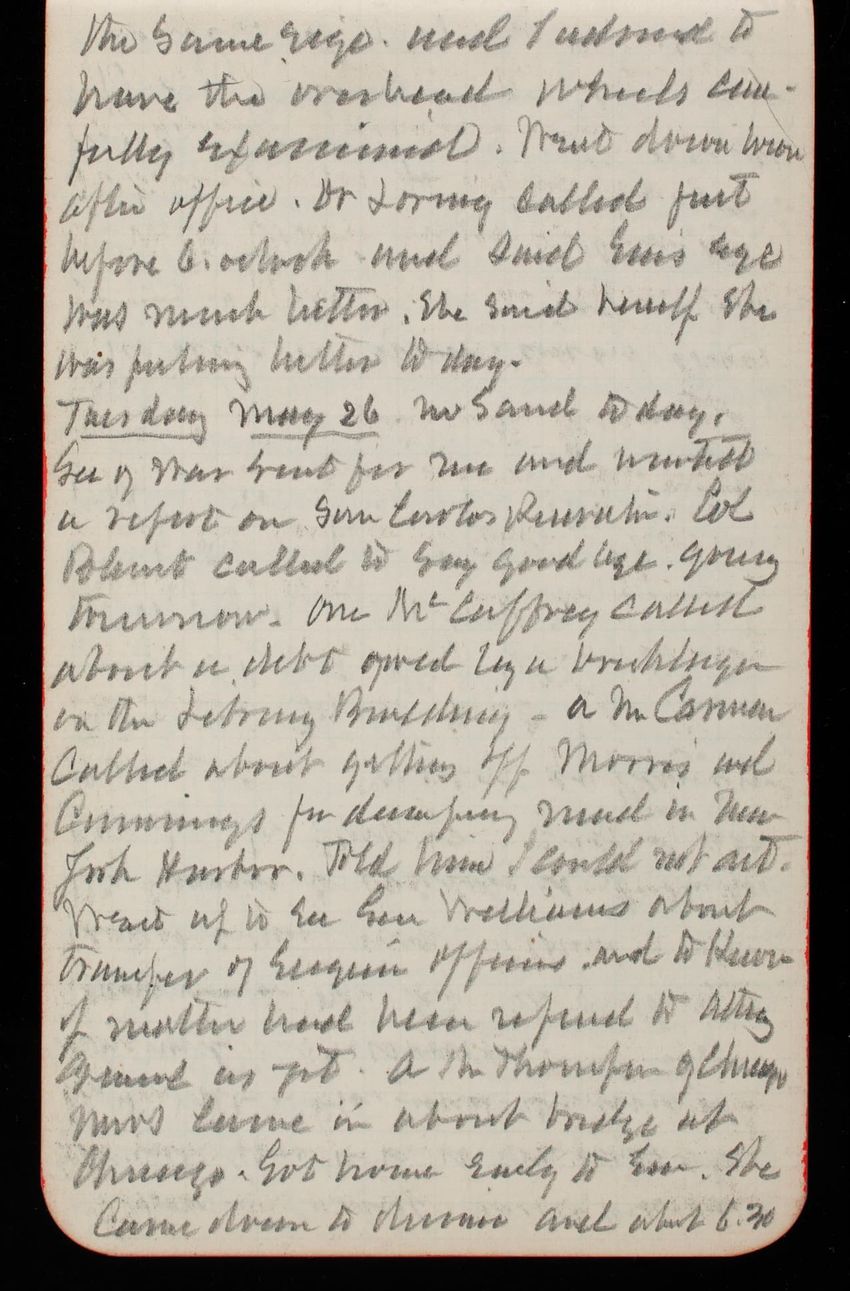 the same size. and I advised to
have the overhead wheels care-
fully examined. Went down town
after office. Dr Loring called just
before 6. oclock and said Ems eye
was much better. She said herself she
was feeling better to day.
Tuesday May 26 no Sand to day.
Sec of War sent for me and wanted
a report on San Carlos Reservation. Col
called to say good bye. going
tomorrow. One McCaffrey called
about a debt owed by a bricklayer
on the Library Building - a Mr Carman
called about getting off Morris and
Cummings for dumping mud in New
York Harbor. Told him I could not act.
Went up to see Gen Williams about
transfer of Engineer officers and to know
if matter had been referred to Atty
General as yet. A Mr Thompson of Chicago
News came in about bridge at
Chicago. Got home early to Em. She
came down to dinner and about 6.30